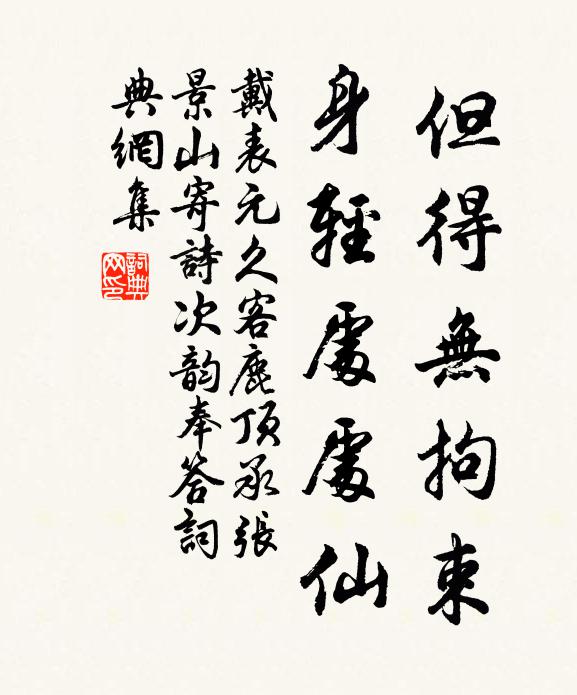 但得無拘束
身輕處處仙
戴表元久客鹿頂承張
景山寄詩次韵奉答詞
典網集
詞典网印